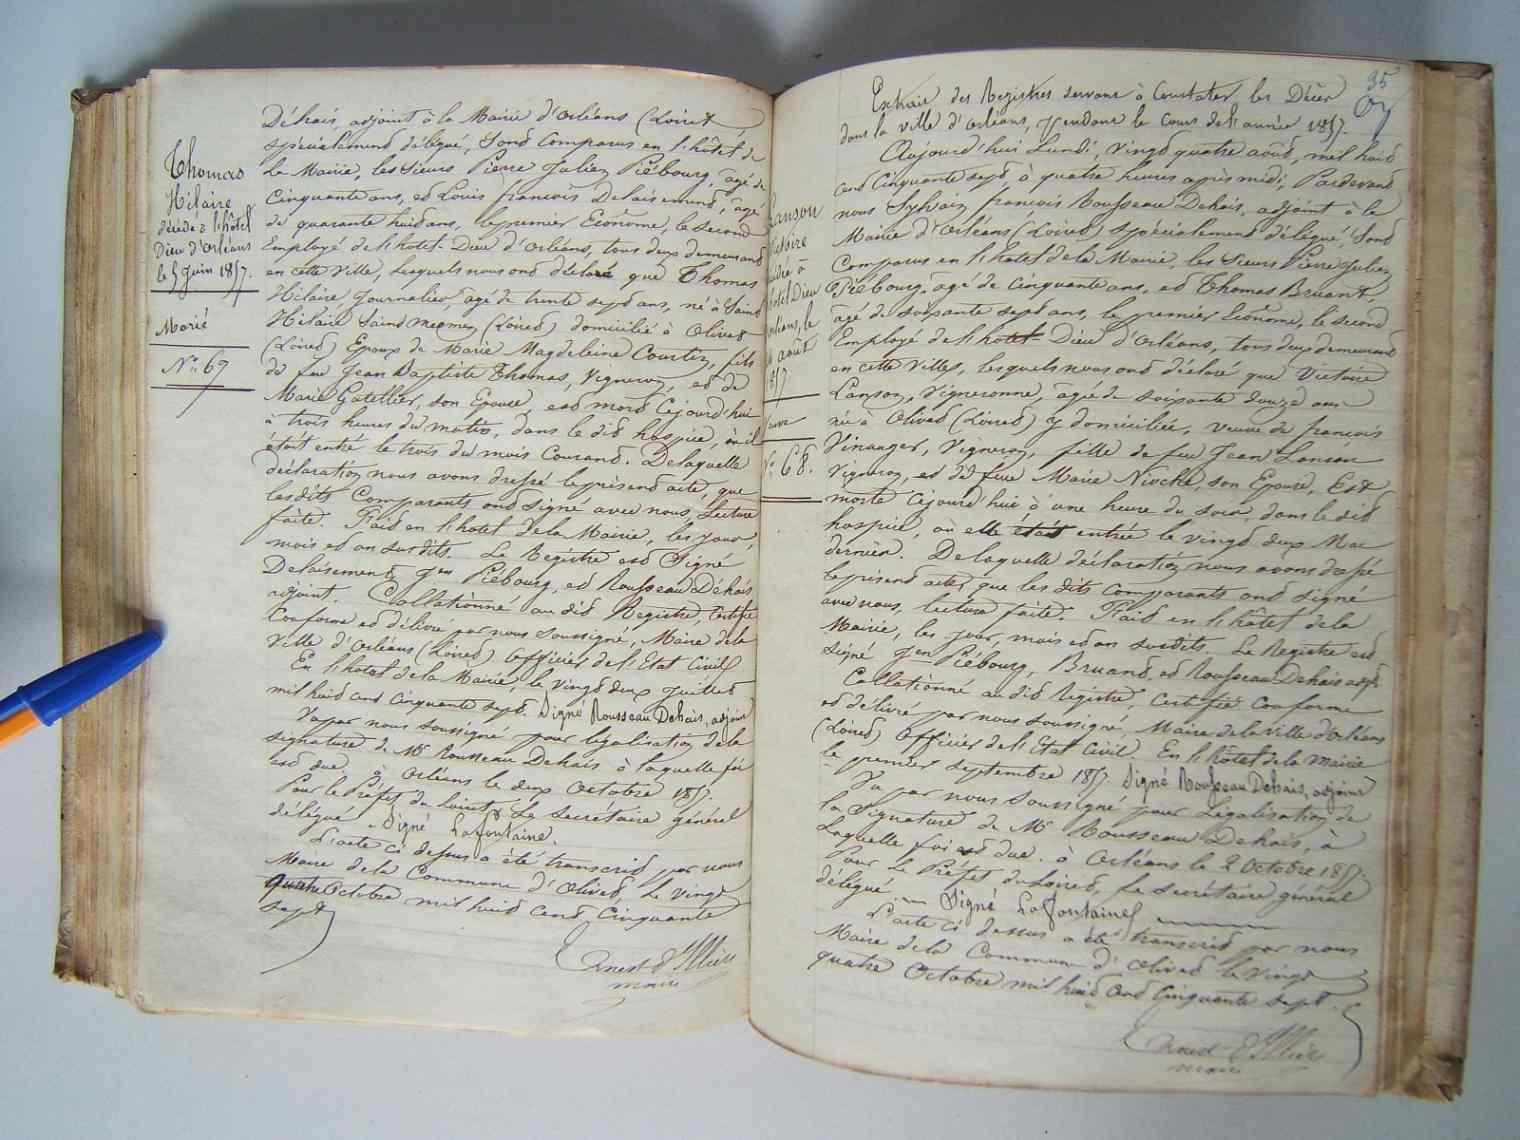 Thomas
Hilaire
décédé à l'hôtel
Dieu d'Orléans
le 5 Juin 1857.
Marié
N° 67
Déhais, adjoint à la Mairie d'Orléans (Loiret
spécialement délégué, Sont comparus en l'hôtel de
la Mairie, les Sieurs Pierre Julien Piébourg, âgé de
Cinquante ans, et Louis françois Delaisement, âgé
de quarante huit ans, le premier Econôme, le second
Employé de l'hôtel-Dieu d'Orléans, tous deux demeurant
en cette Ville, lesquels nous ont déclaré que Thomas
Hilaire Journalier, âgé de trente sept ans, né à Saint
Hilaire Saint Mesmin (Loiret) domicilié à Olivet
(Loiret) Epoux de Marie Magdeleine Courtin, fils
de feu Jean Baptiste Thomas, Vigneron, et de
Marie Gatellier, son Epouse, est mort Cejourd'hui
à trois heures du matin, dans le dit hospice, où il
était entré le trois du mois Courant. De laquelle
déclaration nous avons dressé le présent acte, que
les dits Comparants ont signé avec nous, Lecture
faite. Fait en l'hôtel de la Mairie, les jour,
mois et an susdits. Le Registre est Signé
Delaisement, Jen Piébourg, et Rousseau Déhais
adjoint. Collationné au dit Registre, Certifié
Conforme et délivré par nous soussigné, Maire de la
Ville d'Orléans (Loiret) Officier de l'Etat Civil
En l'hôtel de la Mairie, le Vingt deux Juillet
mil huit cent cinquante sept. Signé Rousseau Dehais, adjoint
Vu par nous soussigné pour légalisation de la
signature de Mr Rousseau Dehais à laquelle foi
est due. à Orléans le deux Octobre 1857.
Pour le Préfet du Loiret, Le Secrétaire général
délégué Signé Lafontaine.
L'acte ci dessus a été transcrit par nous
Maire de la Commune d'Olivet, le Vingt
quatre Octobre mil huit cent Cinquante
sept
Ernest d'Illiers
maire
35
Extrait des Registres servant à Constater les Décès
dans la ville d'Orléans, pendant le Cours de l'année 1857.
Lanson
Victoire
hôtel Dieu
le
août
N° 68.
Aujourd'hui Lundi, Vingt quatre août, mil huit
cent Cinquante sept, à quatre heures après midi, Pardevant
nous Sylvain françois Rousseau Dehais, adjoint à la
Mairie d'Orléans (Loiret) spécialement délégué, Sont
Comparus en l'hôtel de la Mairie, les Sieurs Pierre Julien
Piébourg, âgé de Cinquante ans, et Thomas Bruant,
âgé de soixante sept ans, le premier Econôme, le second
Employé de l'hotel-Dieu d'Orléans, tous deux demeurant
en cette Villes, lesquels nous ont déclaré que Victoire
Lanson, Vigneronne, âgée de soixante douze ans
née à Olivet (Loiret) y domiciliée, veuve de françois
Vigneron, fille de feu Jean Lanson
Vigneron, et de feue Marie son Epouse, Est
morte Cejourd'hui à une heure du soir, dans le dit
hospice, où elle était entrée le vingt deux Mai
dernier. De laquelle déclaration nous avons dressé
le présent acte, que les dits Comparants ont signé
avec nous, lecture faite. Fait en l'hôtel de la
Mairie, les jour, mois et an susdits. Le Registre est
signé Jen Piébourg, Bruant, et Rousseau Dehais adjt.
Collationné au dit Registre, Certifié Conforme
et délivré par nous soussigné, Maire de la Ville d'Orléans
(Loiret) Officier de l'Etat Civil. En l'hôtel de la Mairie
le premier septembre 1857. Signé Rousseau Dehais, adjoint
Vu par nous soussigné pour Légalisation de
la Signature de Mr Rousseau Dehais, à
Laquelle foi est due. à Orléans le 2 Octobre 1857.
Pour le Préfet du Loiret, Le secrétaire général
délégué Signé Lafontaine
L'acte ci dessus a été transcrit par nous
Maire de la Commune d'Olivet le Vingt
quatre Octobre mil huit cent Cinquante sept.
Ernest d'Illiers
maire